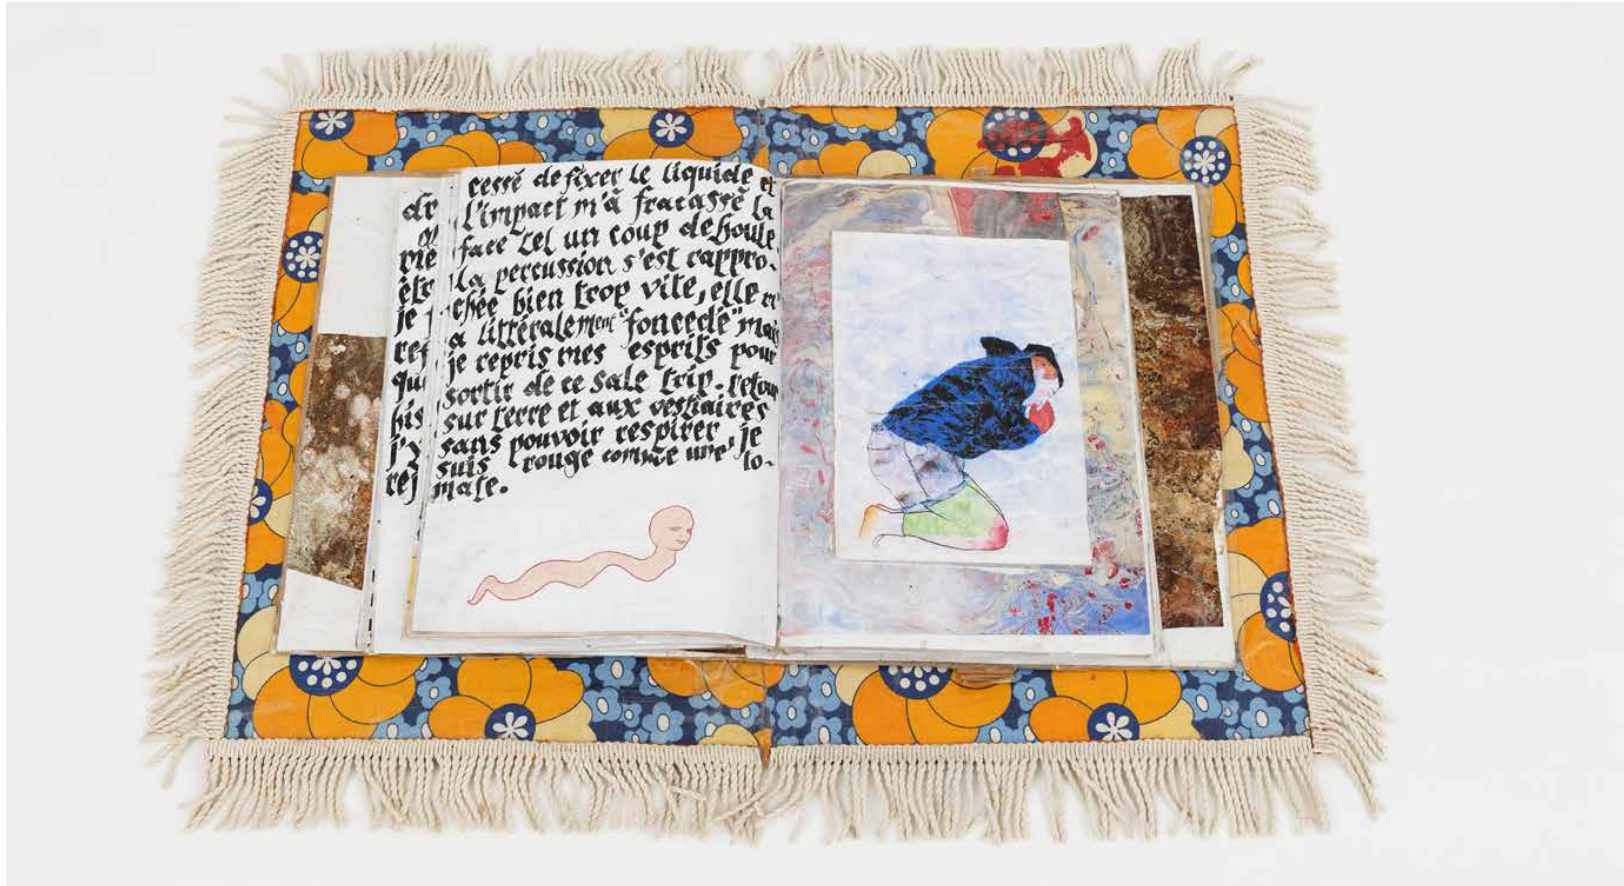 cessé de fixer le liquide et
l'impact m'à fracassé la
face tel un coup de boule
la percussion s'est rappro-
chée bien trop vite, elle m
a littéralement "foncedé" mais
je repris mes esprits pour
sortir de ce sale trip. retour
sur terre et aux vestiaires
sans pouvoir respirer, je
suis rouge comme une to-
mate.